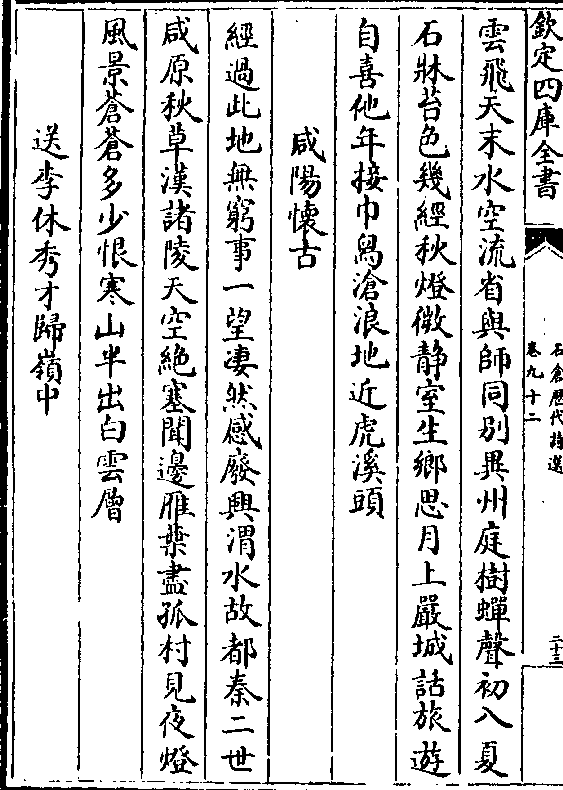 欽定四庫全書
石倉歷代詩選
卷九十二
二十三
雲飛天末水空流省與師同别異州庭樹蟬聲初入夏
石牀苔色幾經秋燈微靜室生鄉思月上嚴城話旅遊
自喜他年接巾舄滄浪地近虎溪頭
咸陽懷古
經過此地無窮事一望凄然感廢興渭水故都秦二世
咸原秋草漢諸陵天空絶塞聞邊雁葉盡孤村見夜燈
風景蒼蒼多少恨寒山半出白雲層
送李休秀才歸嶺中